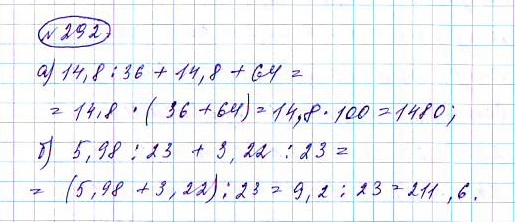 № 292
а) 14,8 : 36 + 14,8 + 64 =
= 14,8 · ( 36 + 64) = 14,8 · 100 = 1480;
б) 5,98 : 23 + 3,22 : 23 =
= (5,98 + 3,22) : 23 = 9,2 : 23 = 211,6.